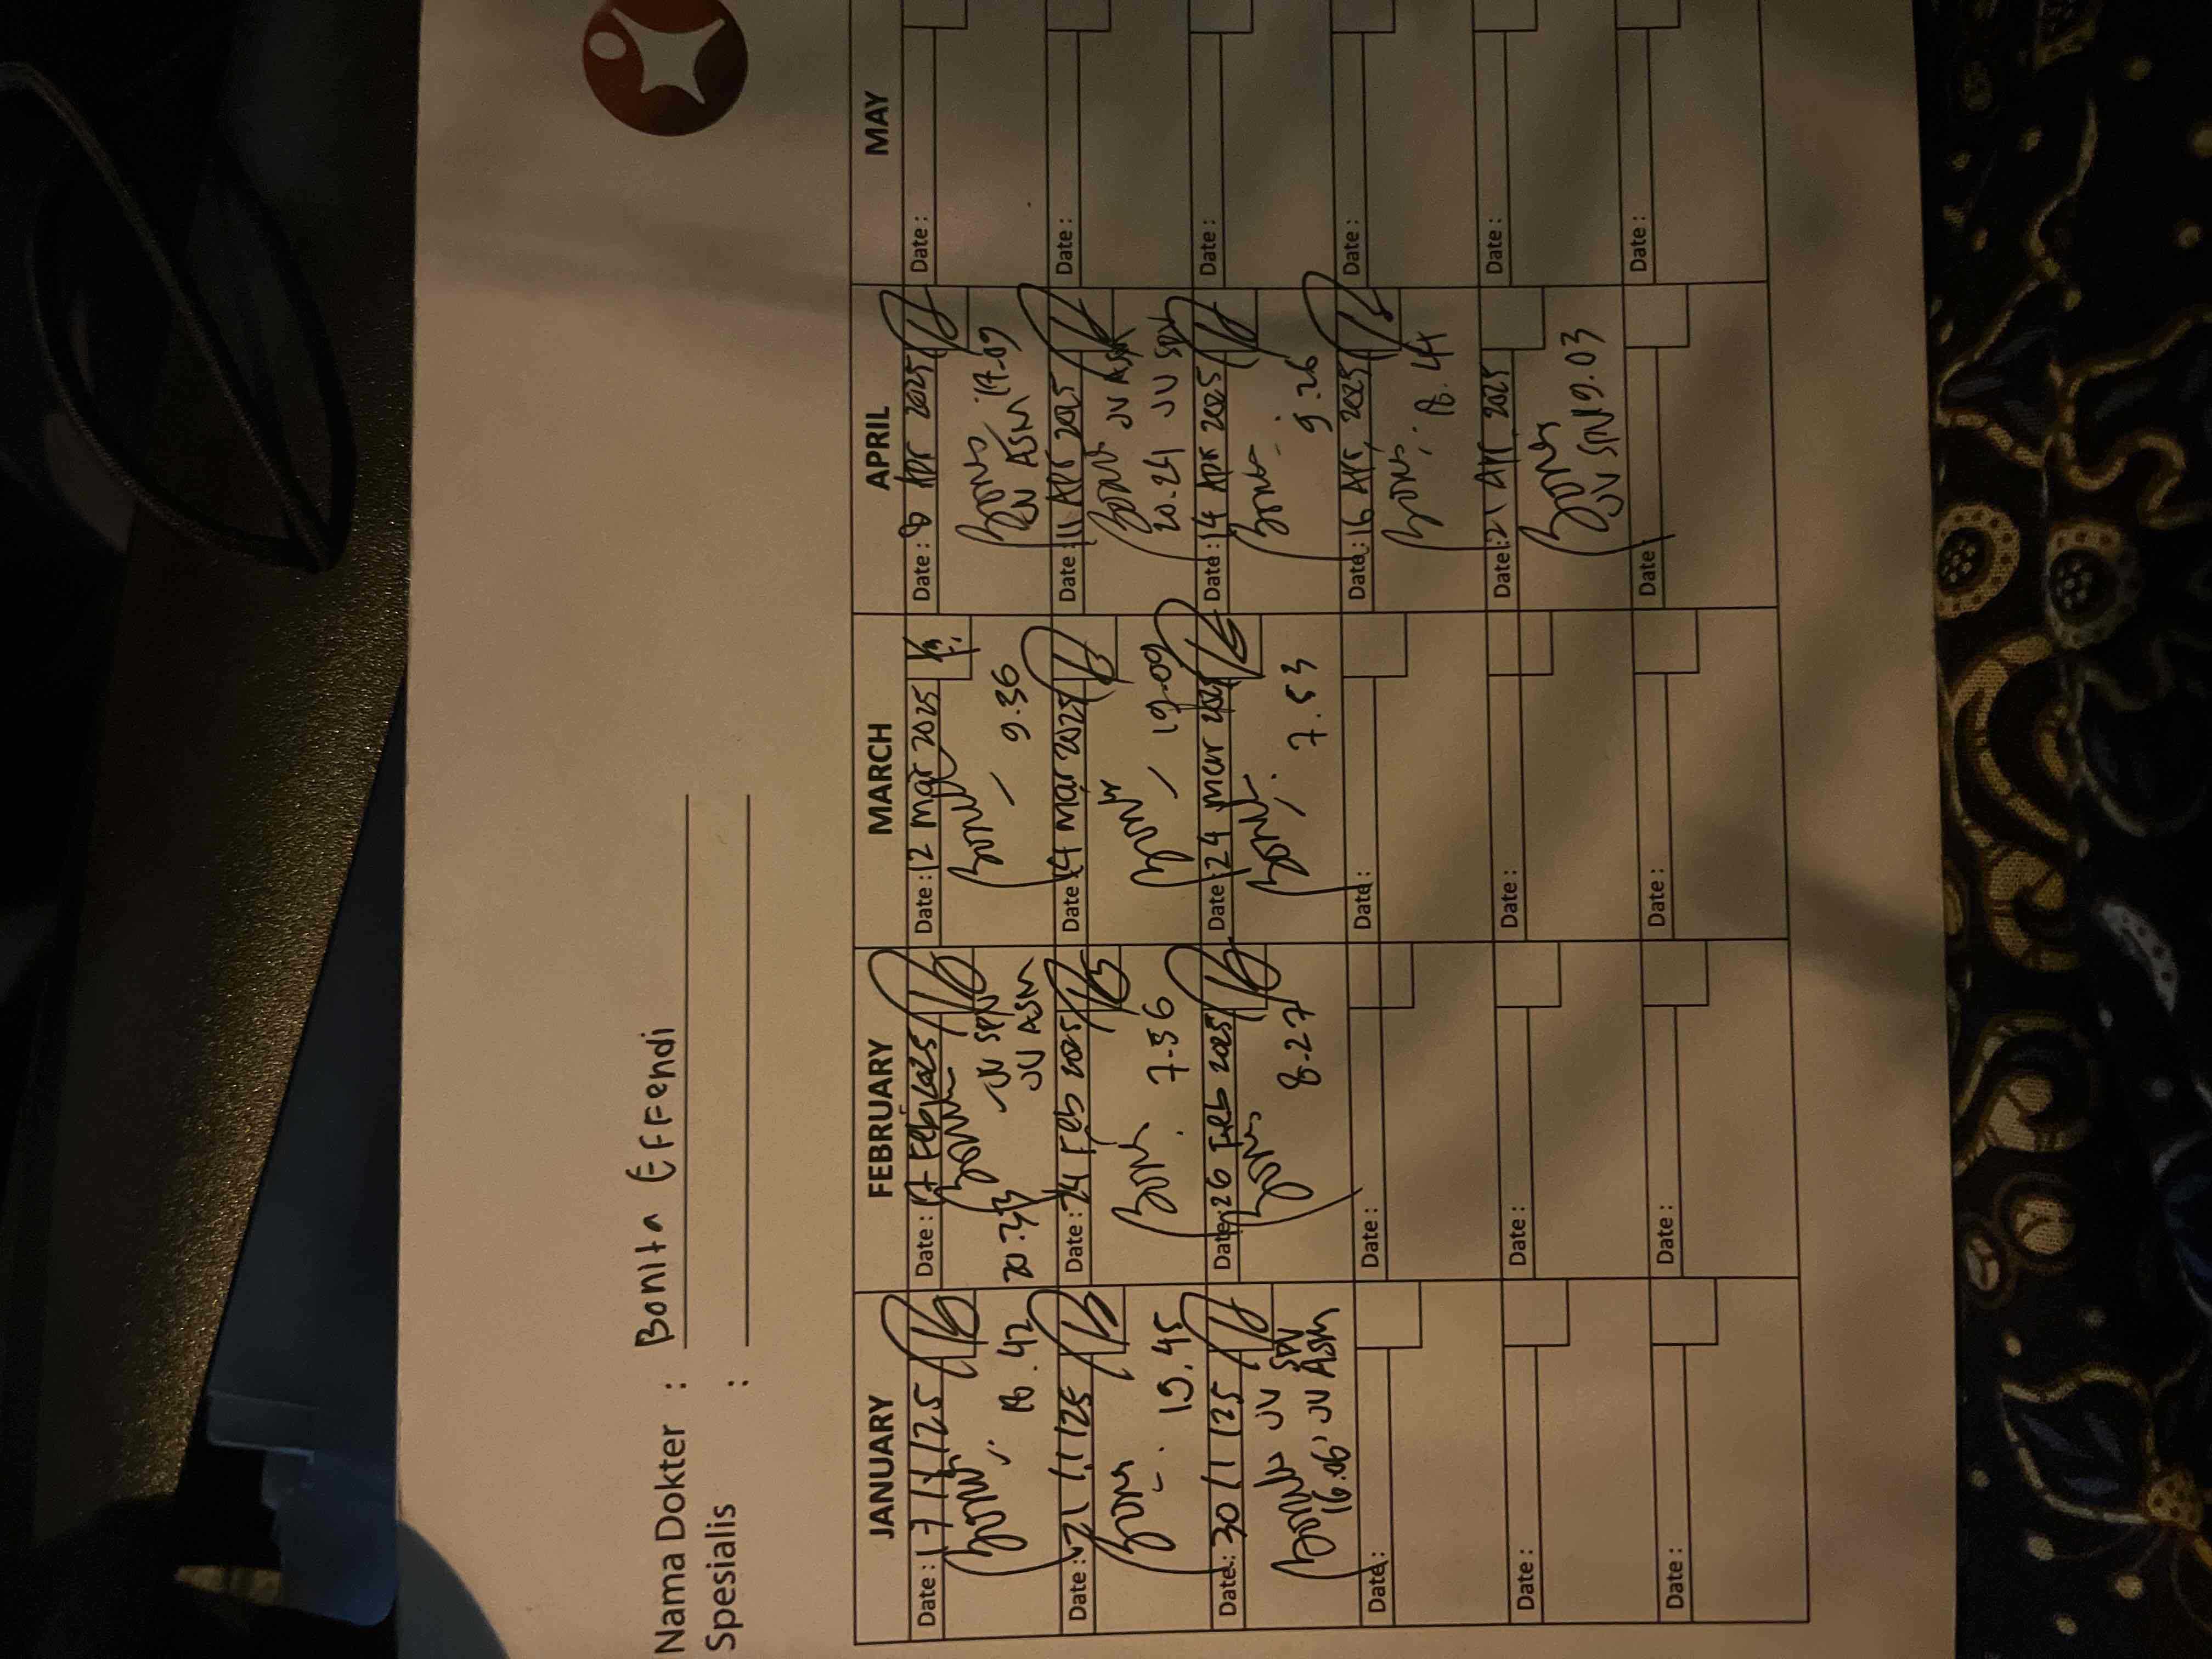 Nama Dokter : Bonita Effendi
Spesialis :
JANUARY
Date : 17/1/25
18.42
Date : 21/1/25
19.45
Date : 30/1/25
JV SPV
16.06' JV ASM
Date :
Date :
Date :
FEBRUARY
Date : 17 Feb 2025
JV SPV
20.33 JV ASM
Date : 24 Feb 2025
7.36
Date : 26 Feb 2025
8.27
Date :
Date :
Date :
MARCH
Date : 12 Mar 2025
9.36
Date : 14 Mar 2025
19.09
Date : 24 Mar 2025
7.53
Date :
Date :
Date :
APRIL
Date : 8 Apr 2025
ASM 17.09
Date : 11 Apr 2025
JV ASM
20.24 JV SPV
Date : 14 Apr 2025
9.26
Date : 16 Apr 2025
18.44
Date : 21 Apr 2025
JV SPV 19.03
Date :
MAY
Date :
Date :
Date :
Date :
Date :
Date :